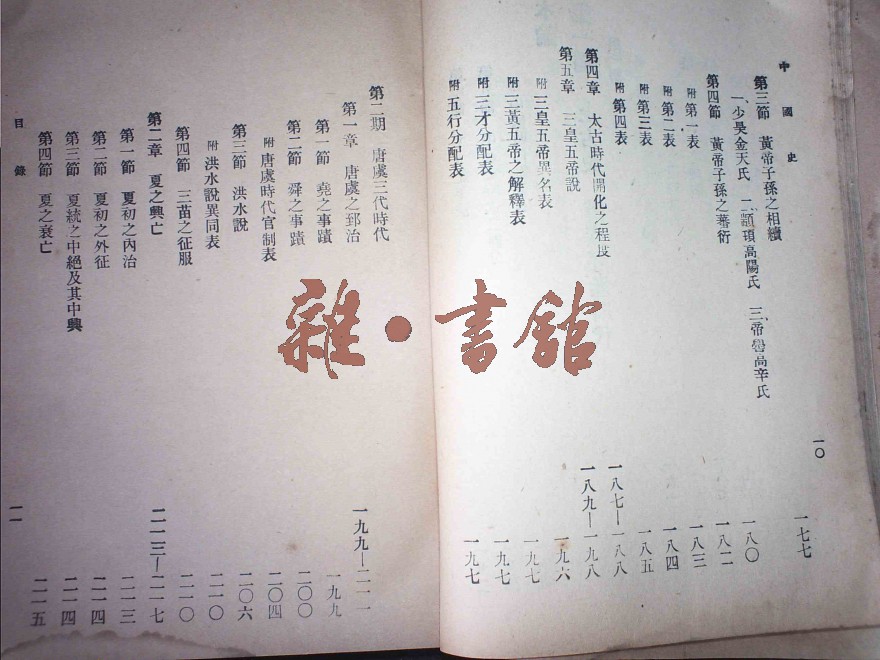 中國史
一〇
第三節 黃帝子孫之相續 一七七
一、少昊金天氏 二、顓頊高陽氏 三、帝嚳高辛氏
第四節 黃帝子孫之蕃衍 一八〇
附 第一表 一八二
附 第二表 一八三
附 第三表 一八四
附 第四表 一八五
第四章 太古時代開化之程度 一八七—一八八
第五章 三皇五帝說 一八九—一九八
附 三皇五帝異名表 一九六
附 三皇五帝之解釋表 一九七
附 三才分配表 一九七
附 五行分配表 一九七
第二期 唐虞三代時代
第一章 唐虞之郅治 一九九—二一一
第一節 堯之事蹟 一九九
第二節 舜之事蹟 二〇〇
附 唐虞時代官制表 二〇四
第三節 洪水說 二〇六
附 洪水說異同表 二一〇
第四節 三苗之征服 二一〇
第二章 夏之興亡 二一三—二一七
第一節 夏初之內治 二一三
第二節 夏初之外征 二一四
第三節 夏統之中絕及其中興 二一四
第四節 夏之衰亡 二一五
目錄
一一
雜·書館